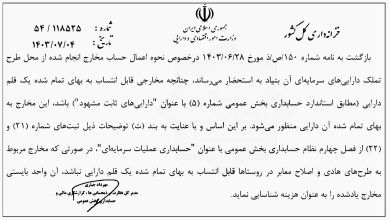 جمهوری اسلامی ایران
وزارت امور اقتصادی و دارایی
خزانه‌داری کل کشور
شماره: ۵۴/۱۱۸۵۲۵
تاریخ: ۱۴۰۳/۰۷/۰۴
بازگشت به نامه شماره ۱۵۰/ص/ذ مورخ ۱۴۰۳/۰۶/۲۸ درخصوص نحوه اعمال حساب مخارج انجام شده از محل طرح
تملک دارایی‌های سرمایه‌ای آن بنیاد به استحضار می‌رساند، چنانچه مخارجی قابل انتساب به بهای تمام شده یک قلم
دارایی (مطابق استاندارد حسابداری بخش عمومی شماره (۵) با عنوان "دارایی‌های ثابت مشهود") باشد، این مخارج به
بهای تمام شده آن دارایی منظور می‌شود. بر این اساس و با عنایت به بند (ث) توضیحات ذیل ثبت‌های شماره (۲۱) و
(۲۲) از فصل چهارم نظام حسابداری بخش عمومی با عنوان "حسابداری عملیات سرمایه‌ای"، در صورتی که مخارج مربوط
به طرح‌های هادی و اصلاح معابر در روستاها قابل انتساب به بهای تمام شده یک قلم دارایی نباشد، آن واحد بایستی
مخارج یادشده را به عنوان هزینه شناسایی نماید.
مهرداد جباری
مدیر کل نظارت بر ذیحسابی‌ها، گزارشگری مالی و
حسابداری بخش عمومی